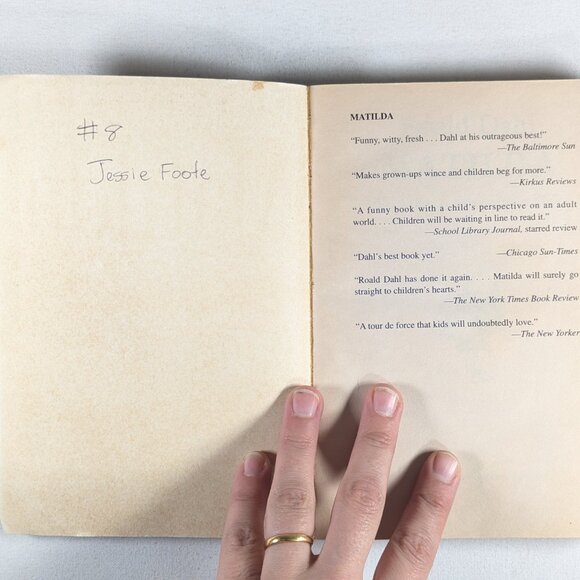 #8
Jessie Foote
MATILDA
“Funny, witty, fresh . . . Dahl at his outrageous best!”
—The Baltimore Sun
“Makes grown-ups wince and children beg for more.”
—Kirkus Reviews
“A funny book with a child’s perspective on an adult
world. . . . Children will be waiting in line to read it.”
—School Library Journal, starred review
“Dahl’s best book yet.” —Chicago Sun-Times
“Roald Dahl has done it again. . . . Matilda will surely go
straight to children’s hearts.”
—The New York Times Book Review
“A tour de force that kids will undoubtedly love.”
—The New Yorker